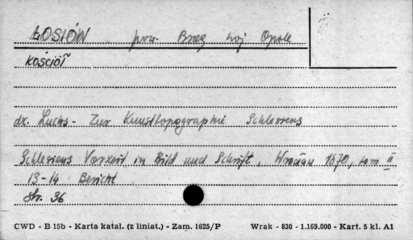 ŁOSIÓW pow. Brzeg woj Opole
KOŚCIÓŁ
dr. Luchs - Zur Kunsttopographie Schlesiens
Schlesiens Vorzeit in Bild und Schrift, Wrocław 1870, tom II
13-14 Bericht
Str. 36
CWD - B 15b - Karta katal. (z liniat.) - Zam. 1625/P Wrak - 630 - 1.169.000 - Kart. 5 kl. A1